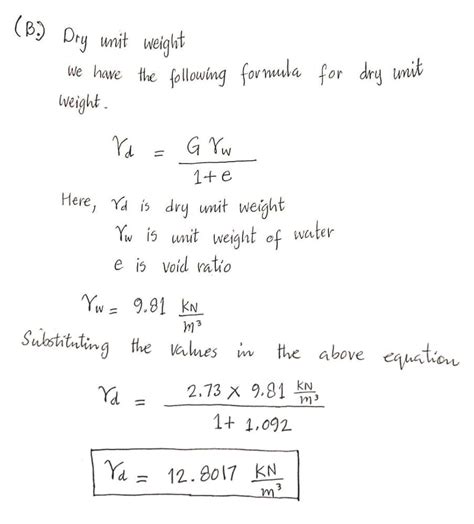 (B.) Dry unit weight
we have the following formula for dry unit
weight.
γd = G γw / 1+e
Here, γd is dry unit weight
γw is unit weight of water
e is void ratio
γw = 9.81 KN/m³
Substituting the values in the above equation
γd = 2.73 × 9.81 KN/m³ / 1+ 1.092
γd = 12.8017 KN/m³